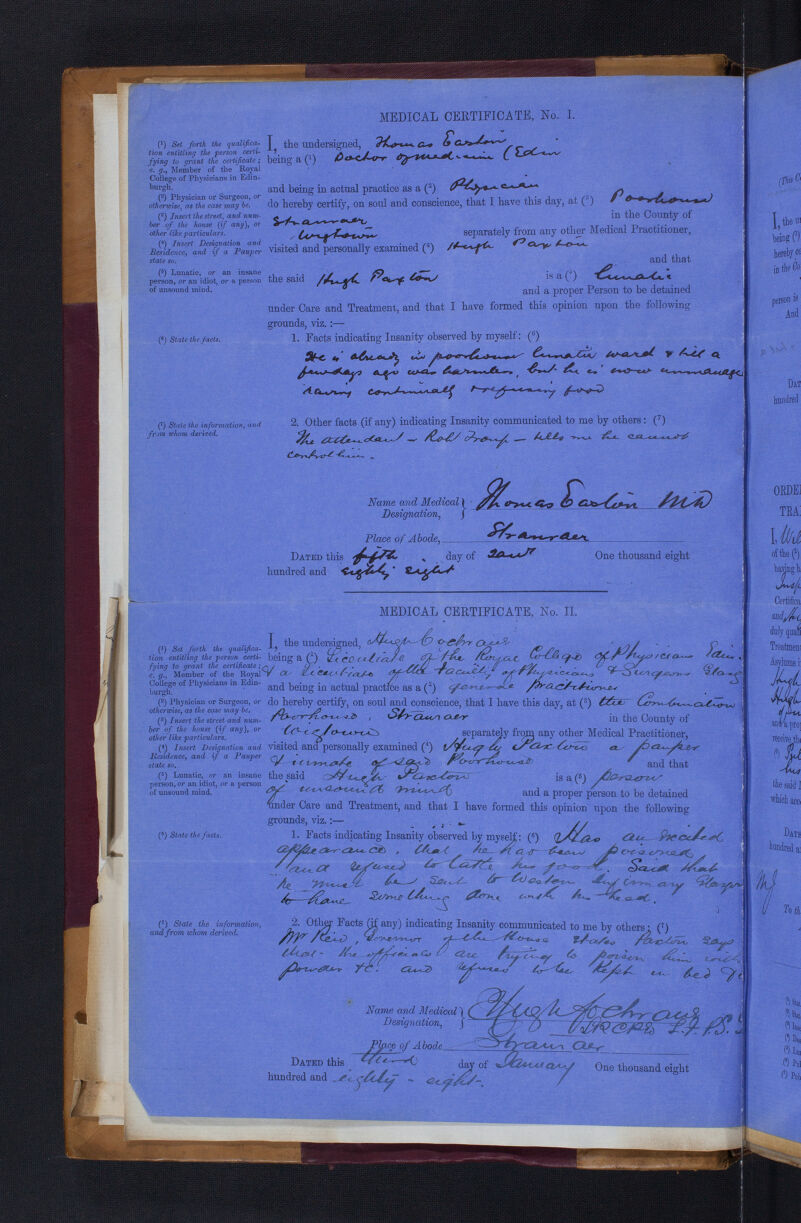 MEDICAL CERTIFICATE, No. I.
(¹) Set forth the qualifica-
tion entitling the person certi-
fying to grant the certificate;
e. g., Member of the Royal
College of Physicians in Edin-
burgh.
(²) Physician or Surgeon, or
otherwise, as the case may be.
(³) Insert the street, and num-
ber of the house (if any), or
other like particulars.
(⁴) Insert Designation and
Residence, and if a Pauper
state so.
(⁵) Lunatic, or an insane
person, or an idiot, or a person
of unsound mind.
I, the undersigned, Thomas Easton
being a (¹) Doctor of medicine (Edin
and being in actual practice as a (²) Physician
do hereby certify, on soul and conscience, that I have this day, at (³) Poorhouse
Stranraer in the County of
Wigtown separately from any other Medical Practitioner,
visited and personally examined (⁴) Hugh Paxton
and that
the said Hugh Paxton is a (⁵) Lunatic
and a proper Person to be detained
under Care and Treatment, and that I have formed this opinion upon the following
grounds, viz. :—
(⁶) State the facts.
1. Facts indicating Insanity observed by myself: (⁶)
He is already in poorhouse lunatic ward & till a
few days ago was harmless, but he is now
raving continually & refusing food
(⁷) State the information, and
from whom derived.
2. Other facts (if any) indicating Insanity communicated to me by others: (⁷)
The attendant – Robt – tells me he cannot
control him.
Name and Medical Designation, Thomas Easton MD
Place of Abode, Stranraer
DATED this fifth day of One thousand eight
hundred and eighty eight
MEDICAL CERTIFICATE, No. II.
(¹) Set forth the qualifica-
tion entitling the person certi-
fying to grant the certificate;
e. g., Member of the Royal
College of Physicians in Edin-
burgh.
(²) Physician or Surgeon, or
otherwise, as the case may be.
(³) Insert the street and num-
ber of the house (if any), or
other like particulars.
(⁴) Insert Designation and
Residence, and if a Pauper
state so.
(⁵) Lunatic, or an insane
person, or an idiot, or a person
of unsound mind.
I, the undersigned, Hugh Cochrane
being a (¹) Licentiate of the Royal College of Physicians Edin.
& a Licentiate of the Faculty of Physicians & Surgeons
and being in actual practice as a (²) general practitioner
do hereby certify, on soul and conscience, that I have this day, at (³) the Combination
Poorhouse, Stranraer in the County of
Wigtown separately from any other Medical Practitioner,
visited and personally examined (⁴) Hugh Paxton a pauper
& inmate of said Poorhouse and that
the said Hugh Paxton is a (⁵) person
of unsound mind and a proper person to be detained
under Care and Treatment, and that I have formed this opinion upon the following
grounds, viz. :—
(⁶) State the facts.
1. Facts indicating Insanity observed by myself: (⁶) Has an excited
appearance, that he has been poisoned
and refused to take his food. Said that
he must be sent to Western Infirmary
to have something done with his head.
(⁷) State the information,
and from whom derived.
2. Other Facts (if any) indicating Insanity communicated to me by others: (⁷)
Mr Reid, Governor of the House states Paxton says
that the officials are trying to poison him with
powder &c. and refuses to be kept in bed
Name and Medical Designation, Hugh Cochrane
Place of Abode Stranraer
DATED this third day of January One thousand eight
hundred and eighty - eight.